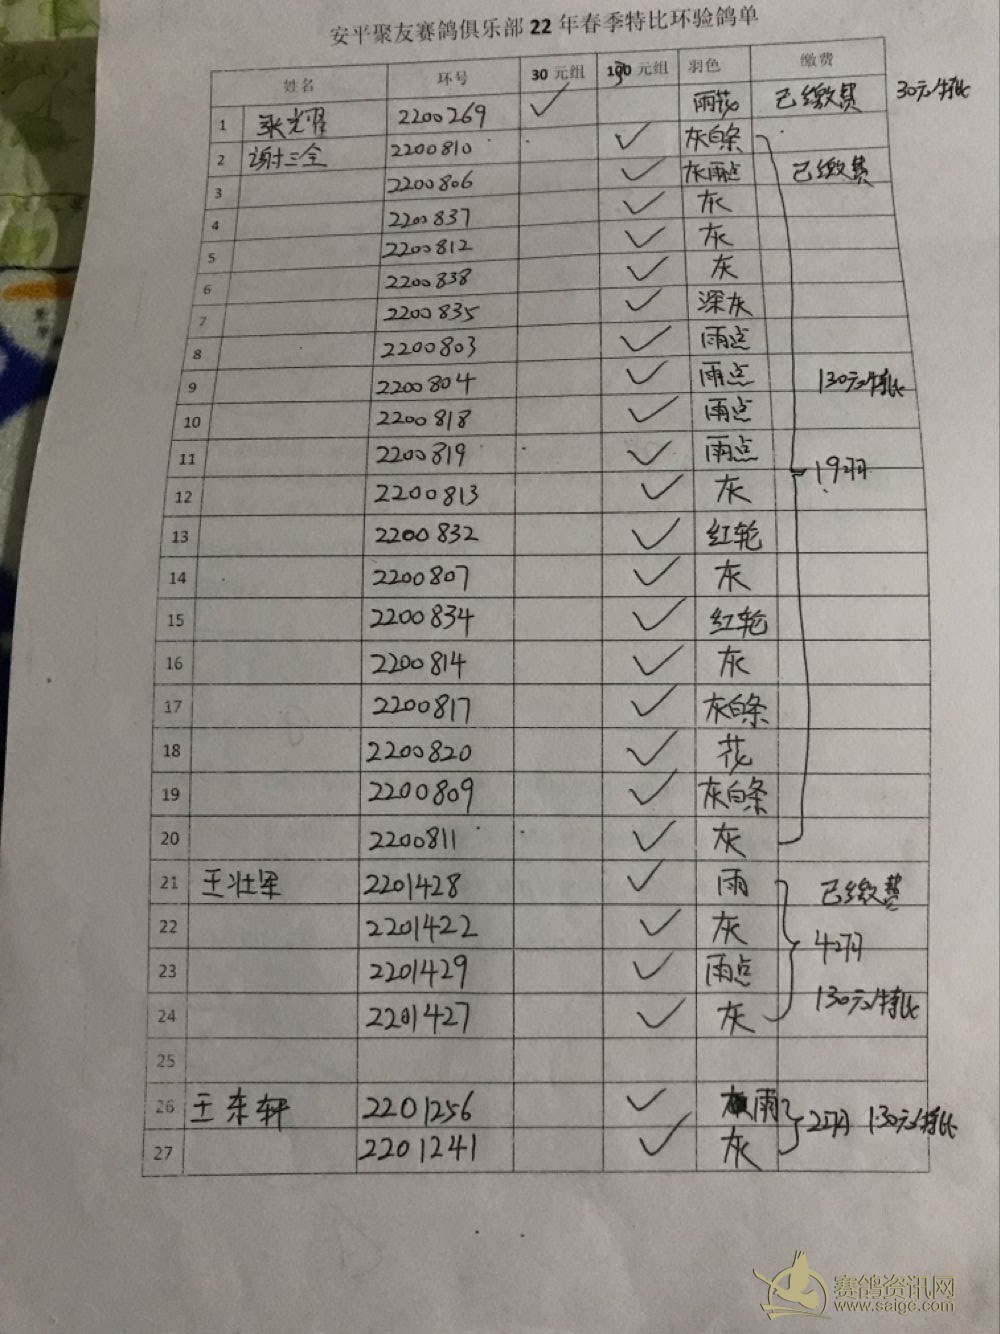 安平聚友赛鸽俱乐部22年春季特比环验鸽单
姓名 环号 30元组 130元组 羽色 缴费
1 张光耀 2200269 ✓ 雨花 已缴费 30元/特比
2 谢三全 2200810 ✓ 灰白条
3 2200806 ✓ 灰雨点 已缴费
4 2200837 ✓ 灰
5 2200812 ✓ 灰
6 2200838 ✓ 灰
7 2200835 ✓ 深灰
8 2200803 ✓ 雨点
9 2200804 ✓ 雨点 130元/特比
10 2200818 ✓ 雨点
11 2200819 ✓ 雨点
12 2200813 ✓ 灰 19羽
13 2200832 ✓ 红轮
14 2200807 ✓ 灰
15 2200834 ✓ 红轮
16 2200814 ✓ 灰
17 2200817 ✓ 灰白条
18 2200820 ✓ 花
19 2200809 ✓ 灰白条
20 2200811 ✓ 灰
21 王壮军 2201428 ✓ 雨 已缴费
22 2201422 ✓ 灰 4羽
23 2201429 ✓ 雨点
24 2201427 ✓ 灰 130元/特比
25
26 王东轩 2201256 ✓ 雨 2羽 130元/特比
27 2201241 ✓ 灰
赛鸽资讯网
www.saige.com